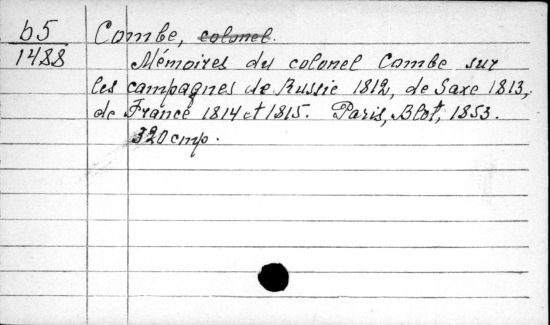 b5
1488
Combe, colonel.
Mémoires du colonel Combe sur
les campagnes de Russie 1812, de Saxe 1813,
de France 1814 et 1815. Paris, Blot, 1853.
320 стр.